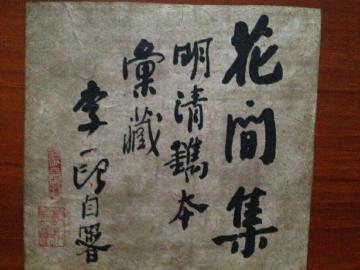 花间集
明清鐫本
彙藏
李一氓自署